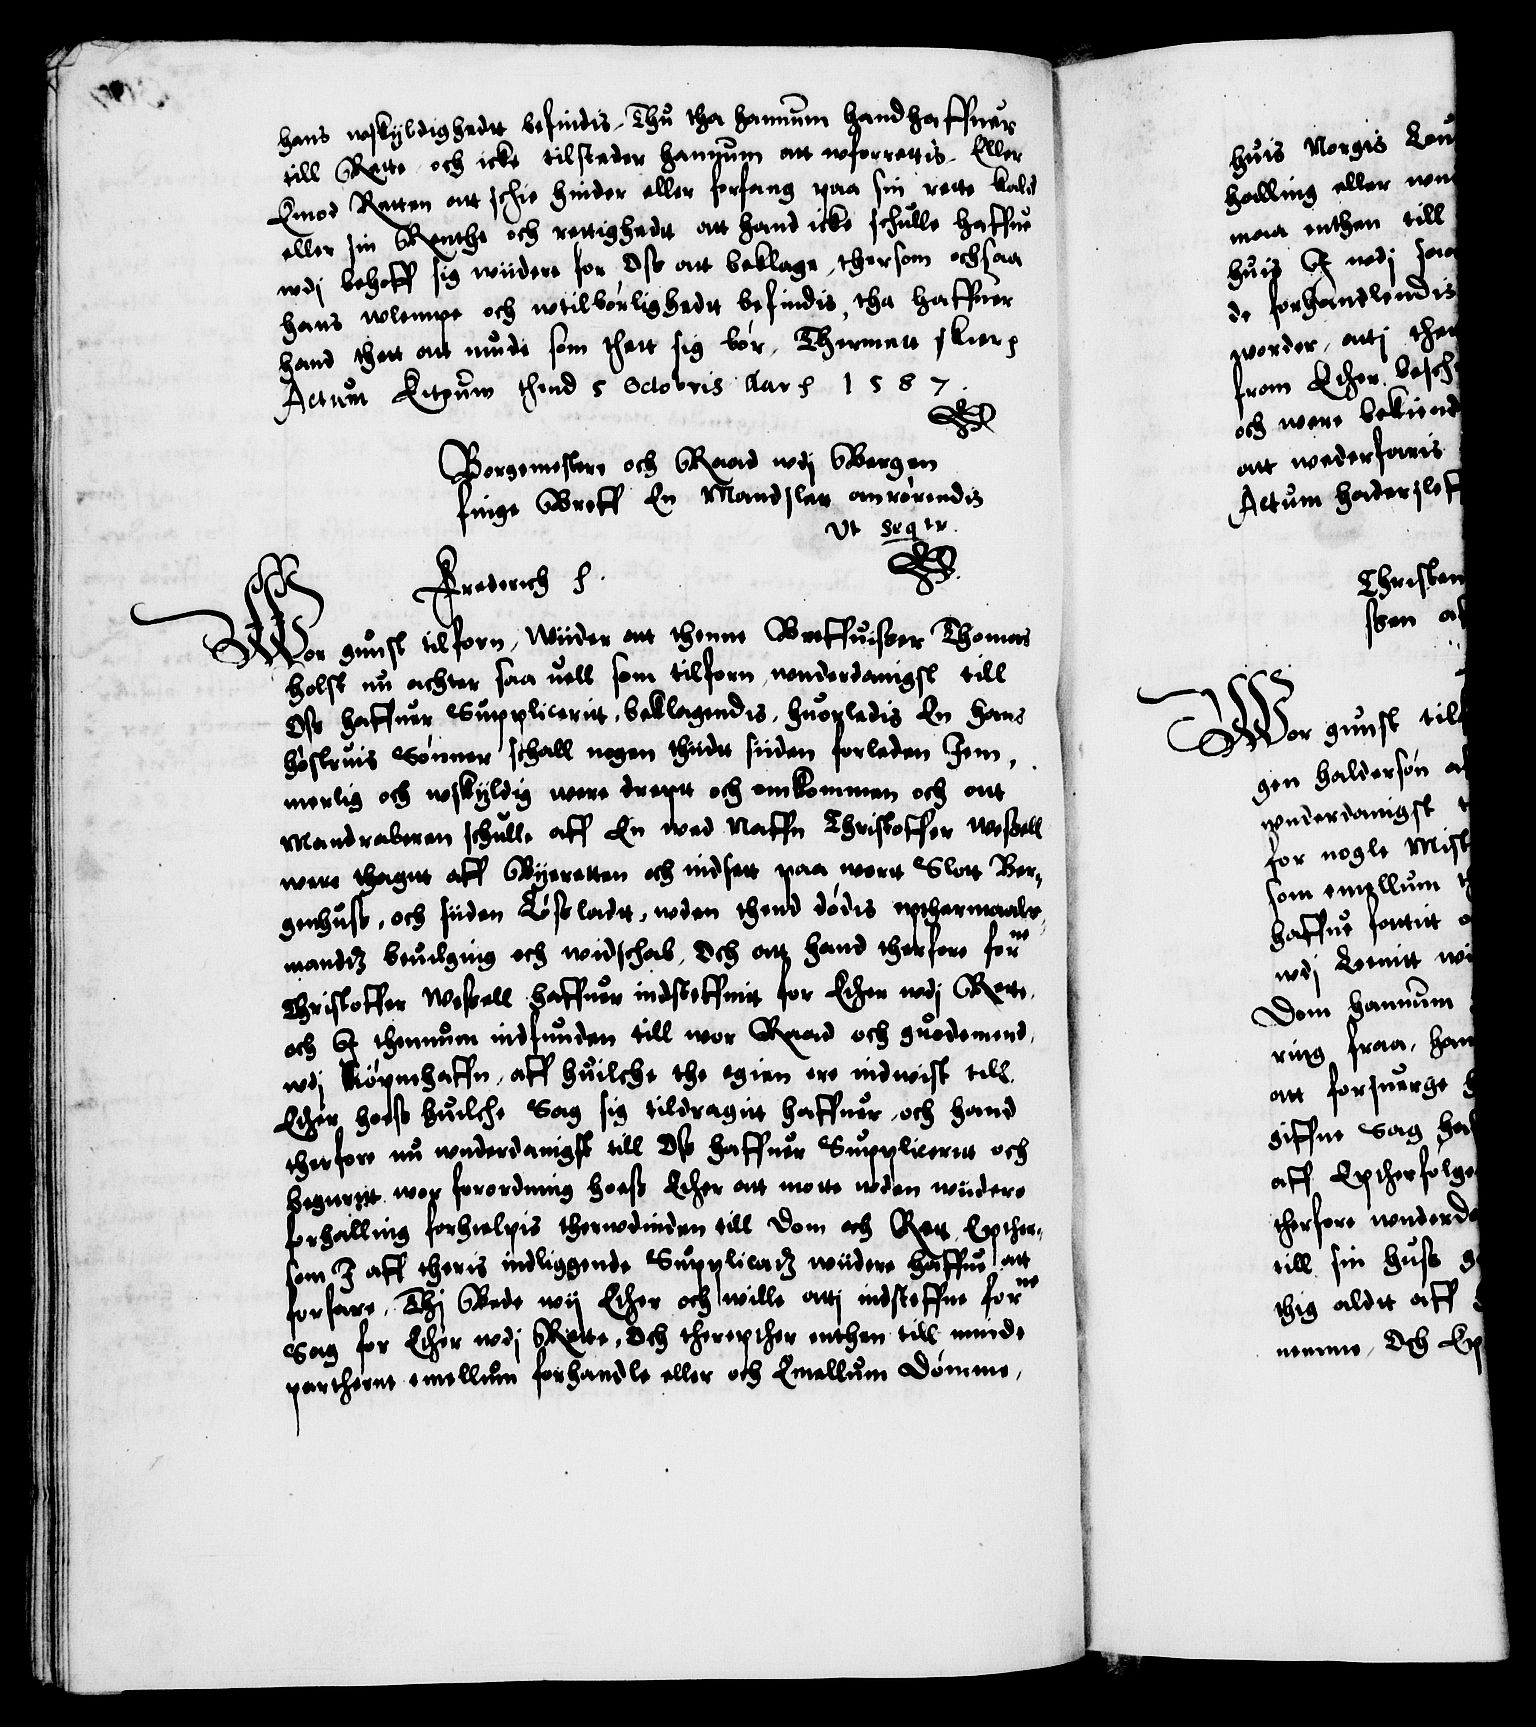 hans wskyldighedtt befindis, Thu tha hannum handhaffuer
till Rette och icke tilsteder hannum att wforrettis, Eller
Emod Retten att schie hinder eller forfang paa sin rette kald
eller sin Renthe och rettighedt att hand icke schulle haffue
wdj behoff sig wiidere for Oss att beklage, thersom ochsaa
hans wlempe och wtilbørlighedtt befindis, tha haffuer
hand thett att nude som thett sig bør, Thermett skier
Actum thend 5 Octobris Aar 1587.
Borgemestere och Raad wdj Bergen
finge Breff En Mandslet anrørendis
vt seqtr.
Frederich
Wor gunst tilforn, Wiider att thenne Breffuiser Thomas
Holst nu achter saa uell som tilforn wnderdanigst till
Oss haffuer Supplicerit, beklagendis, huorledis En hans
høstruis Sønner schall nogen thidtt siiden forleden Jem,
merlig och wskyldig were drept och omkommen och att
Mandraberen schulle aff En wed Naffn Christoffer Wessell
were thagit aff Byeretten och indsett paa wort Slott Ber,
genhuss, och siiden Løssladtt, wden thend dødis epthermaals
mandtz beuilging och widschab, Och att hand therfore forne
Christoffer Wessell haffuer indsteffnitt for Ether wdj Rette,
och I thennum indfunden till wor Raad och guodemend,
wdj Kiøpnehaffn, aff huilche the egien ere indwist till
Ether, hoess huilche Sag sig tildragitt haffuer, och hand
therfore nu wnderdanigst till Oss haffuer Supplicerett och
begerett wor forordning hoess Ether att motte wden wiidere
forhalling forhielpis therwdinden till Dom och Rett, Epther,
som I aff theris indliggende Supplicatz wiidere haffue att
forfare, Thj Bede wij Ether och wille attj indsteffne forne
Sag for Ether wdj Rette, Och therepther enthen till minde
partherne emellum forhandle eller och Emellum Dømme,
huis Norgis
halling eller
maa enthen till
huis I wdj
de forhandlendis
worder, attj
from Ether
och were bekiend
att wederfaris
Actum
Christen
Wor gunst
gen Haldersøn
wnderdanigst
for nogle
som emellum
haffue
wdj
Dom hannum
ring fraa,
att forsuerge
giffne Sag
aff Eptherfølge
therfore
till sin huss
thig aldtt aff
nemme, Och